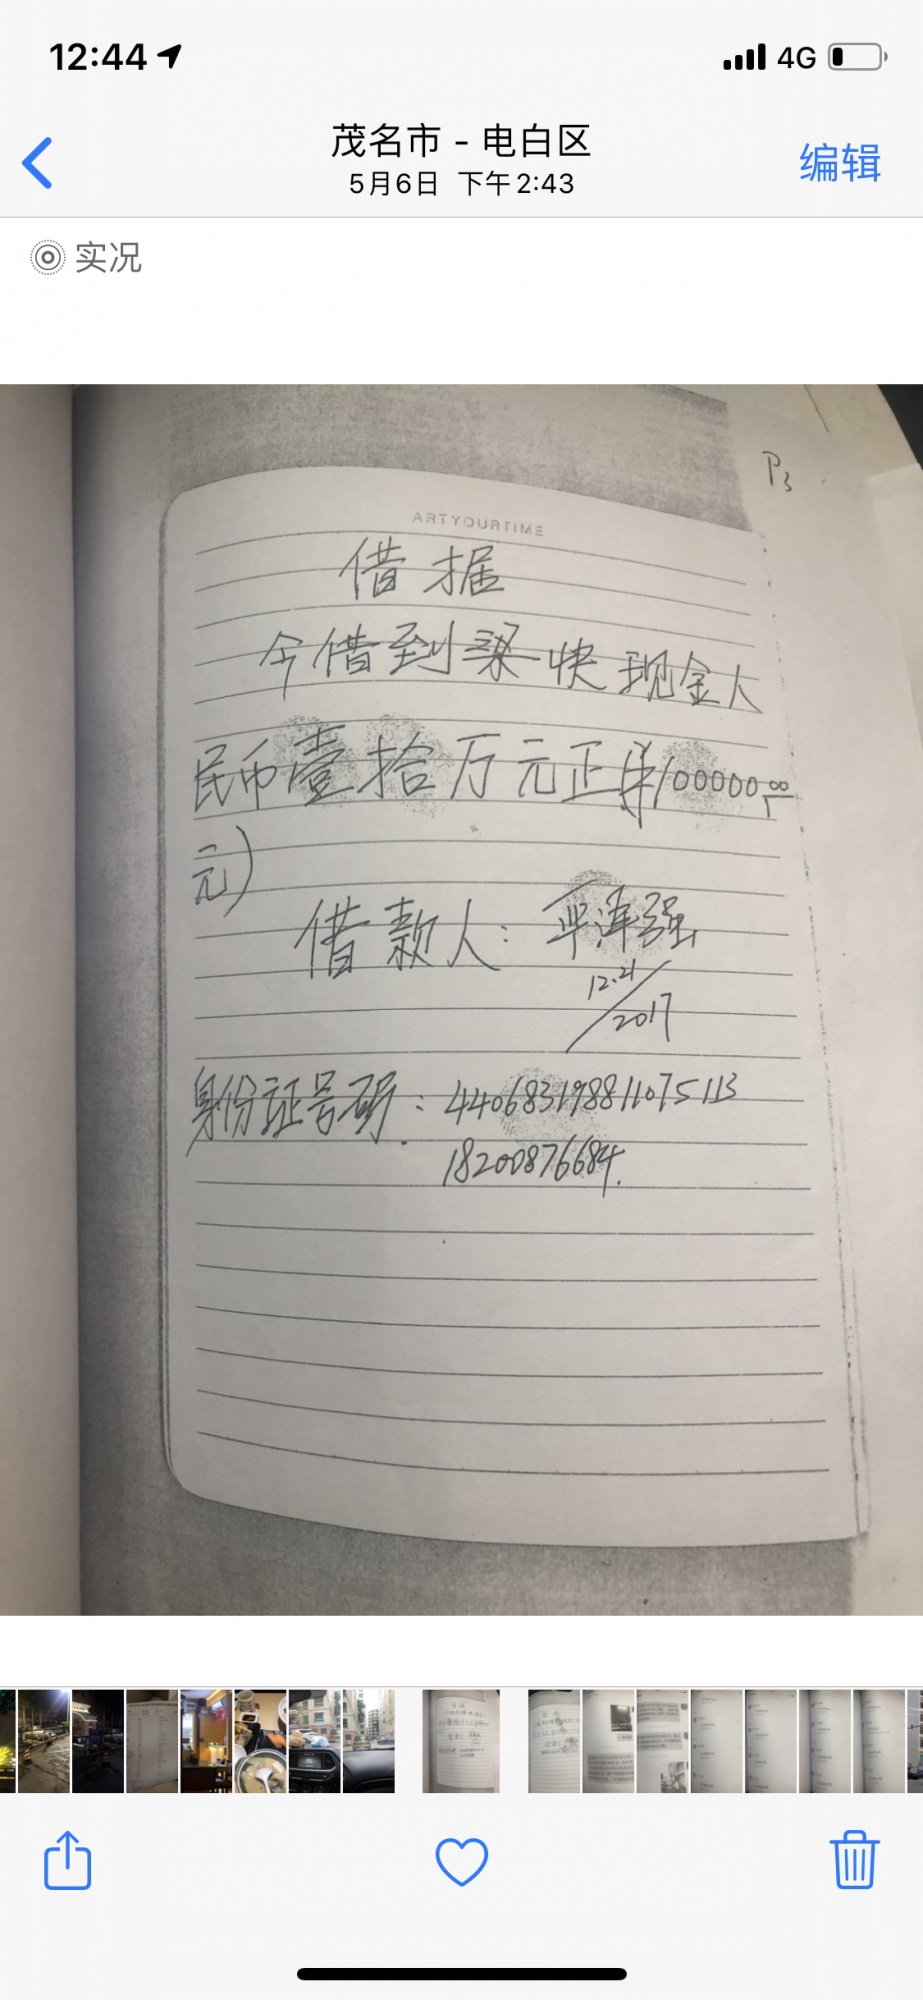 12:44
4G
茂名市 - 电白区
5月6日 下午2:43
编辑
实况
P3
ARTYOURTIME
借据
今借到梁快现金人
民币壹拾万元正(¥100000.00
元)
借款人:
12.21
2017
身份证号码: 440683198811075113
18200876684.